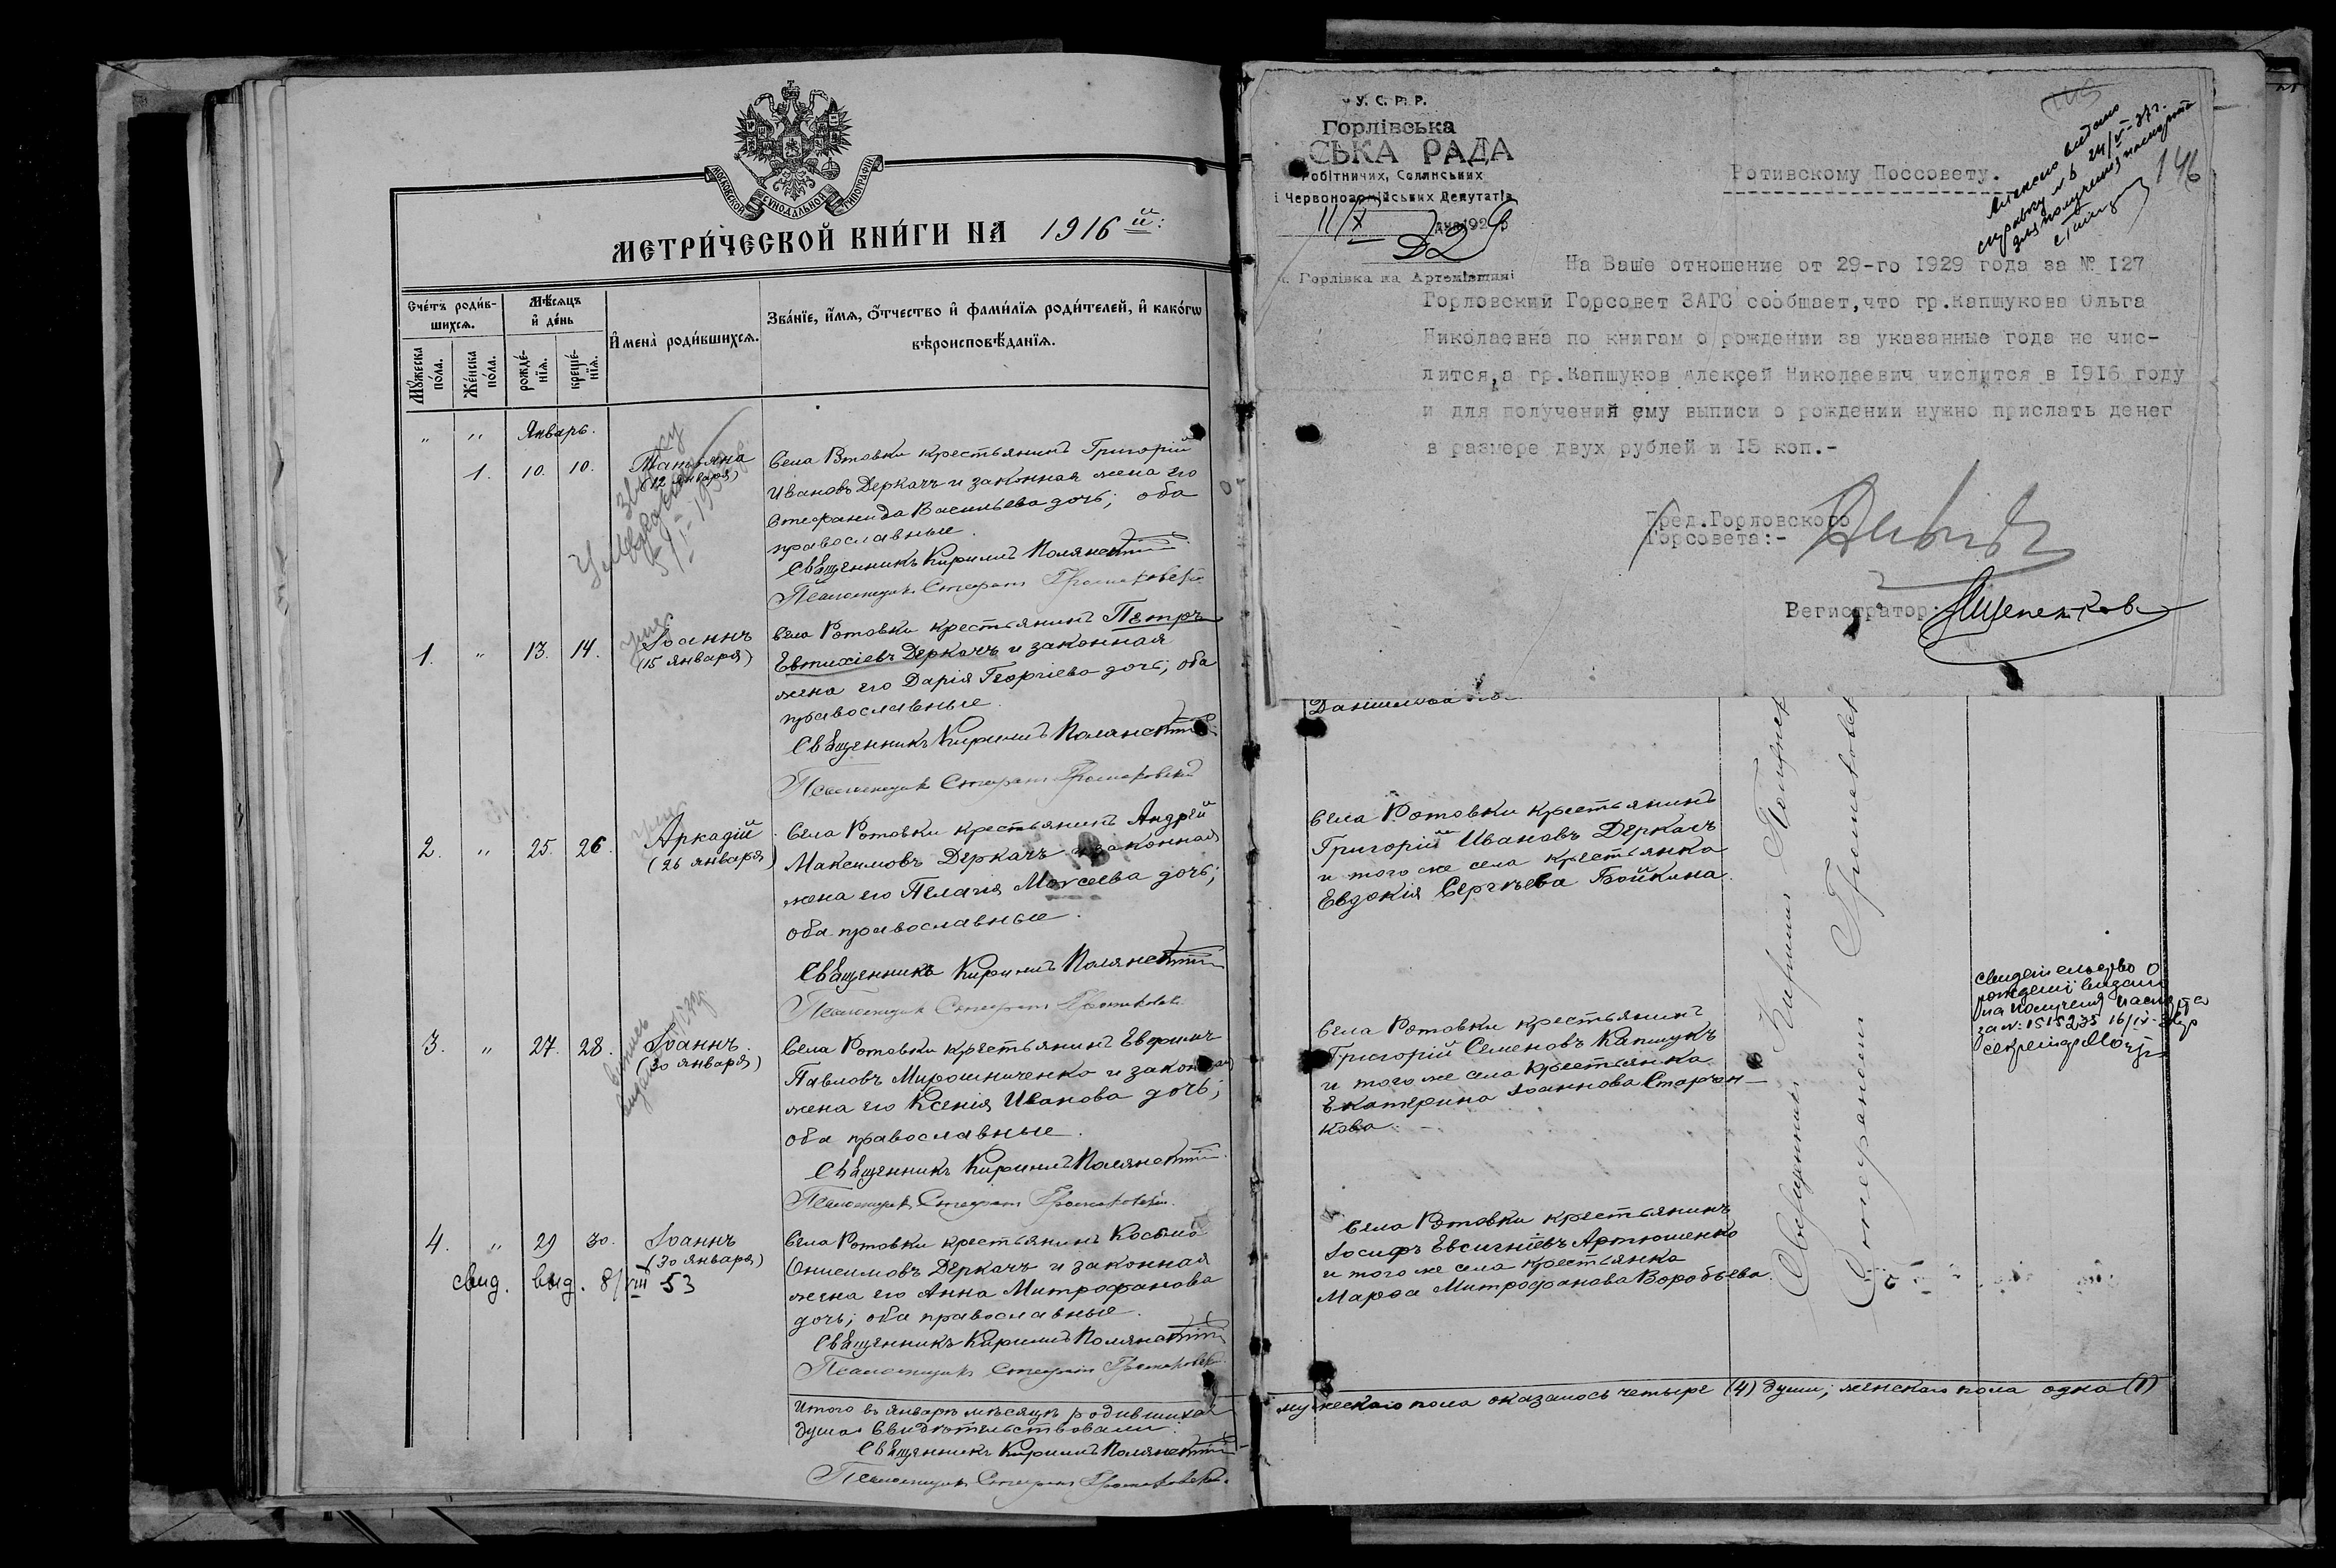 МОСКОВСКОЙ СѴНОДАЛЬНОЙ ТИПОГРАФІИ
МЕТРИ́ЧЕСКОЙ КНИ́ГИ НА 1916 й:
Сче́тъ роди́в-
шихсѧ.
Мѣ́сѧцъ
и҆ де́нь
И҆мена̀ роди́вшихсѧ.
Зва́нїе, и҆́мѧ, ѻ҆́тчество и҆ фами́лїѧ роди́телей, и҆ како́гѡ
вѣроисповѣ́данїѧ.
Мꙋ́жеска
по́ла.
Же́нска
по́ла.
рожде́-
нїѧ.
креще́-
нїѧ.
" " Январь.
1. 10. 10.
Татьяна
(12 января)
Села Ротовки крестьянинъ Григорій
Ивановъ Деркачъ и законная жена его
Стефанида Васильева дочь; оба
православные.
Священникъ Кириллъ Полянскій
Псаломщикъ Стефанъ
1. " 13. 14.
Іоаннъ
(15 января)
Села Ротовки крестьянинъ Петръ
Евтихіевъ Деркачъ и законная
жена его Дарія Георгіева дочь; оба
православные.
Священникъ Кириллъ Полянскій
Псаломщикъ Стефанъ
2. " 25. 26.
Аркадій
(26 января)
Села Ротовки крестьянинъ Андрей
Максимовъ Деркачъ и законная
жена его Пелагія Моѵсеева дочь;
оба православные.
Священникъ Кириллъ Полянскій
Псаломщикъ Стефанъ
3. " 27. 28.
Іоаннъ.
(30 января)
Села Ротовки крестьянинъ
Павловъ Мирошниченко и законная
жена его Ксенія Иванова дочь;
оба православные.
Священникъ Кириллъ Полянскій
Псаломщикъ Стефанъ
4. " 29 30.
Іоаннъ
(30 января)
свид. выд. 8/VIII 53
Села Ротовки крестьянинъ Косьма
Онисимовъ Деркачъ и законная
жена его Анна Митрофанова
дочь; оба православные.
Священникъ Кириллъ Полянскій
Псаломщикъ Стефанъ
Итого въ январѣ мѣсяцѣ родившихся
душа. Свидѣтельствовали:
Священникъ Кириллъ Полянскій
Псаломщикъ Стефанъ
У. С. Р. Р.
Горлівська
СЬКА РАДА
Робітничих, Селянських
і Червоноармійських Депутатів
11/X 1929
м. Горлівка на Артемівщині
146
Ротивскому Поссовету.
На Ваше отношение от 29-го 1929 года за № 127
Горловский Горсовет ЗАГС сообщает,что гр.Капшукова Ольга
Николаевна по книгам о рождении за указанные года не чис-
лится,а гр.Капшуков Алексей Николаевич числится в 1916 году
и для получений ему выписи о рождении нужно прислать денег
в размере двух рублей и 15 коп.-
Пред.Горловского
Горсовета:-
Регистратор:
Села Ротовки крестьянинъ
Григорій Ивановъ Деркачъ
и того же села крестьянка
Евдокія Сергѣева Бойкина.
Села Ротовки крестьянинъ
Григорій Семеновъ Капшукъ
и того же села крестьянка
Екатерина Іоаннова Старчен-
кова.
Села Ротовки крестьянинъ
Іосифъ Евсигніевъ Артюшенко
и того же села крестьянка
Марѳа Митрофанова Воробьева.
Священникъ Кириллъ
Стефанъ
свидетельство о
рождении выдано
на получения паспорта
за №
мужескаго пола оказалось четыре (4) души, женскаго пола одна (1)